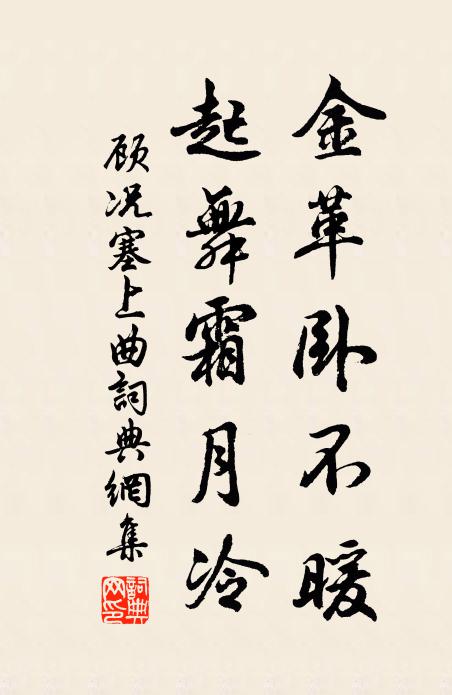 金革卧不暖
起舞霜月冷
顾况塞上曲詞典網集
詞典网印